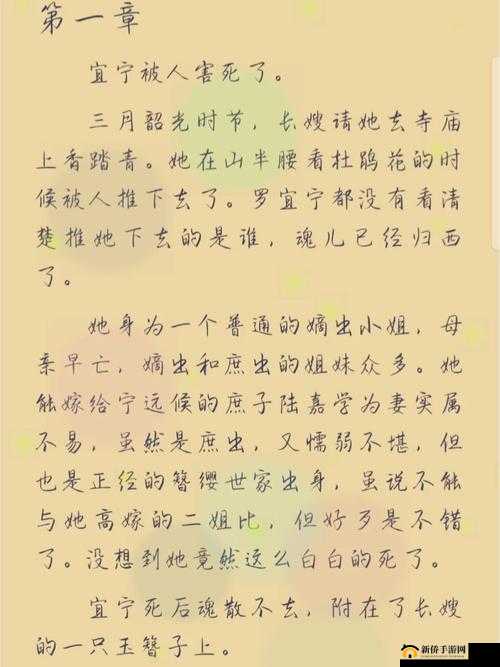 第一章
宜宁被人害死了。
三月韶光时节，长嫂请她去寺庙
上香踏青。她在山半腰看杜鹃花的时
候被人推下去了。罗宜宁都没有看清
楚推她下去的是谁，魂儿已经归西
了。
她身为一个普通的嫡出小姐，母
亲早亡，嫡出和庶出的姐妹众多。她
能嫁给宁远候的庶子陆嘉学为妻实属
不易，虽然是庶出，又懦弱不堪，但
也是正经的簪缨世家出身，虽说不能
与她高嫁的二姐比，但好歹是不错
了。没想到她竟然这么白白的死了。
宜宁死后魂散不去，附在了长嫂
的一只玉簪子上。
新侨手游网